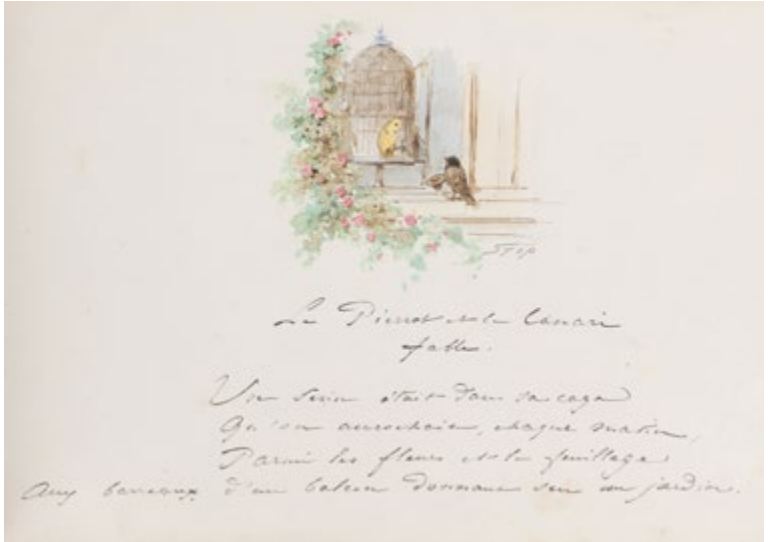 STOP
Le Pierrot et le Canari
fable.
Un serin était dans sa cage
Qu'on accrochait, chaque matin,
Parmi les fleurs et le feuillage
Aux barreaux d'un balcon donnant sur un jardin.